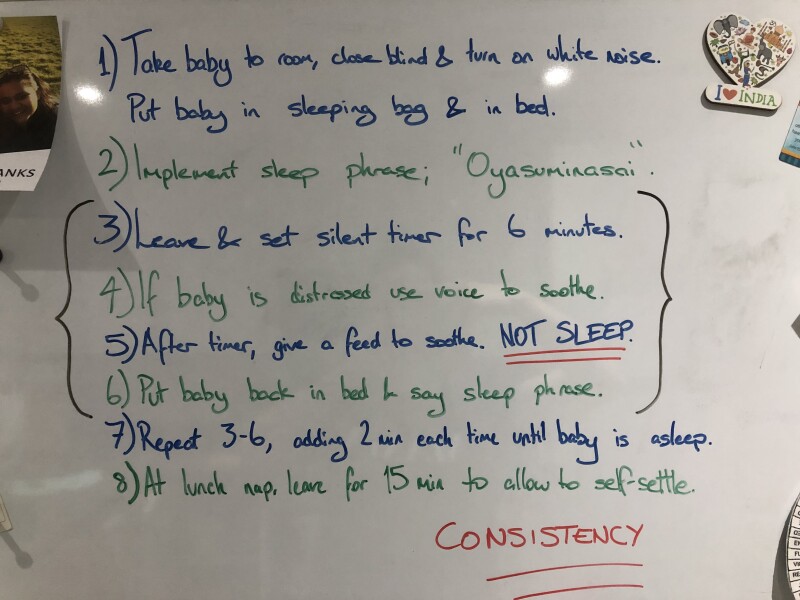 1) Take baby to room, close blind & turn on white noise.
Put baby in sleeping bag & in bed.
2) Implement sleep phrase; "Oyasuminasai".
3) Leave & set silent timer for 6 minutes.
4) If baby is distressed use voice to soothe.
5) After timer, give a feed to soothe. NOT SLEEP.
6) Put baby back in bed & say sleep phrase.
7) Repeat 3-6, adding 2 min each time until baby is asleep.
8) At lunch nap, leave for 15 min to allow to self-settle.
CONSISTENCY
I ❤ INDIA